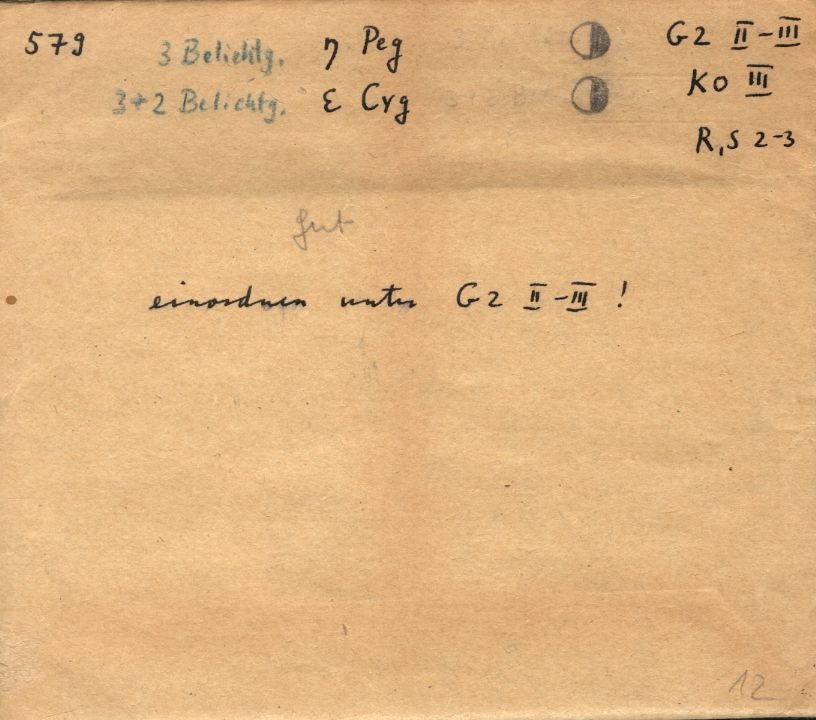 579 3 Belichtg. η Peg ◑ G2 II-III
3+2 Belichtg. ε Cyg ◑ K0 III
R,S 2-3
gut
einordnen unter G2 II-III !
12